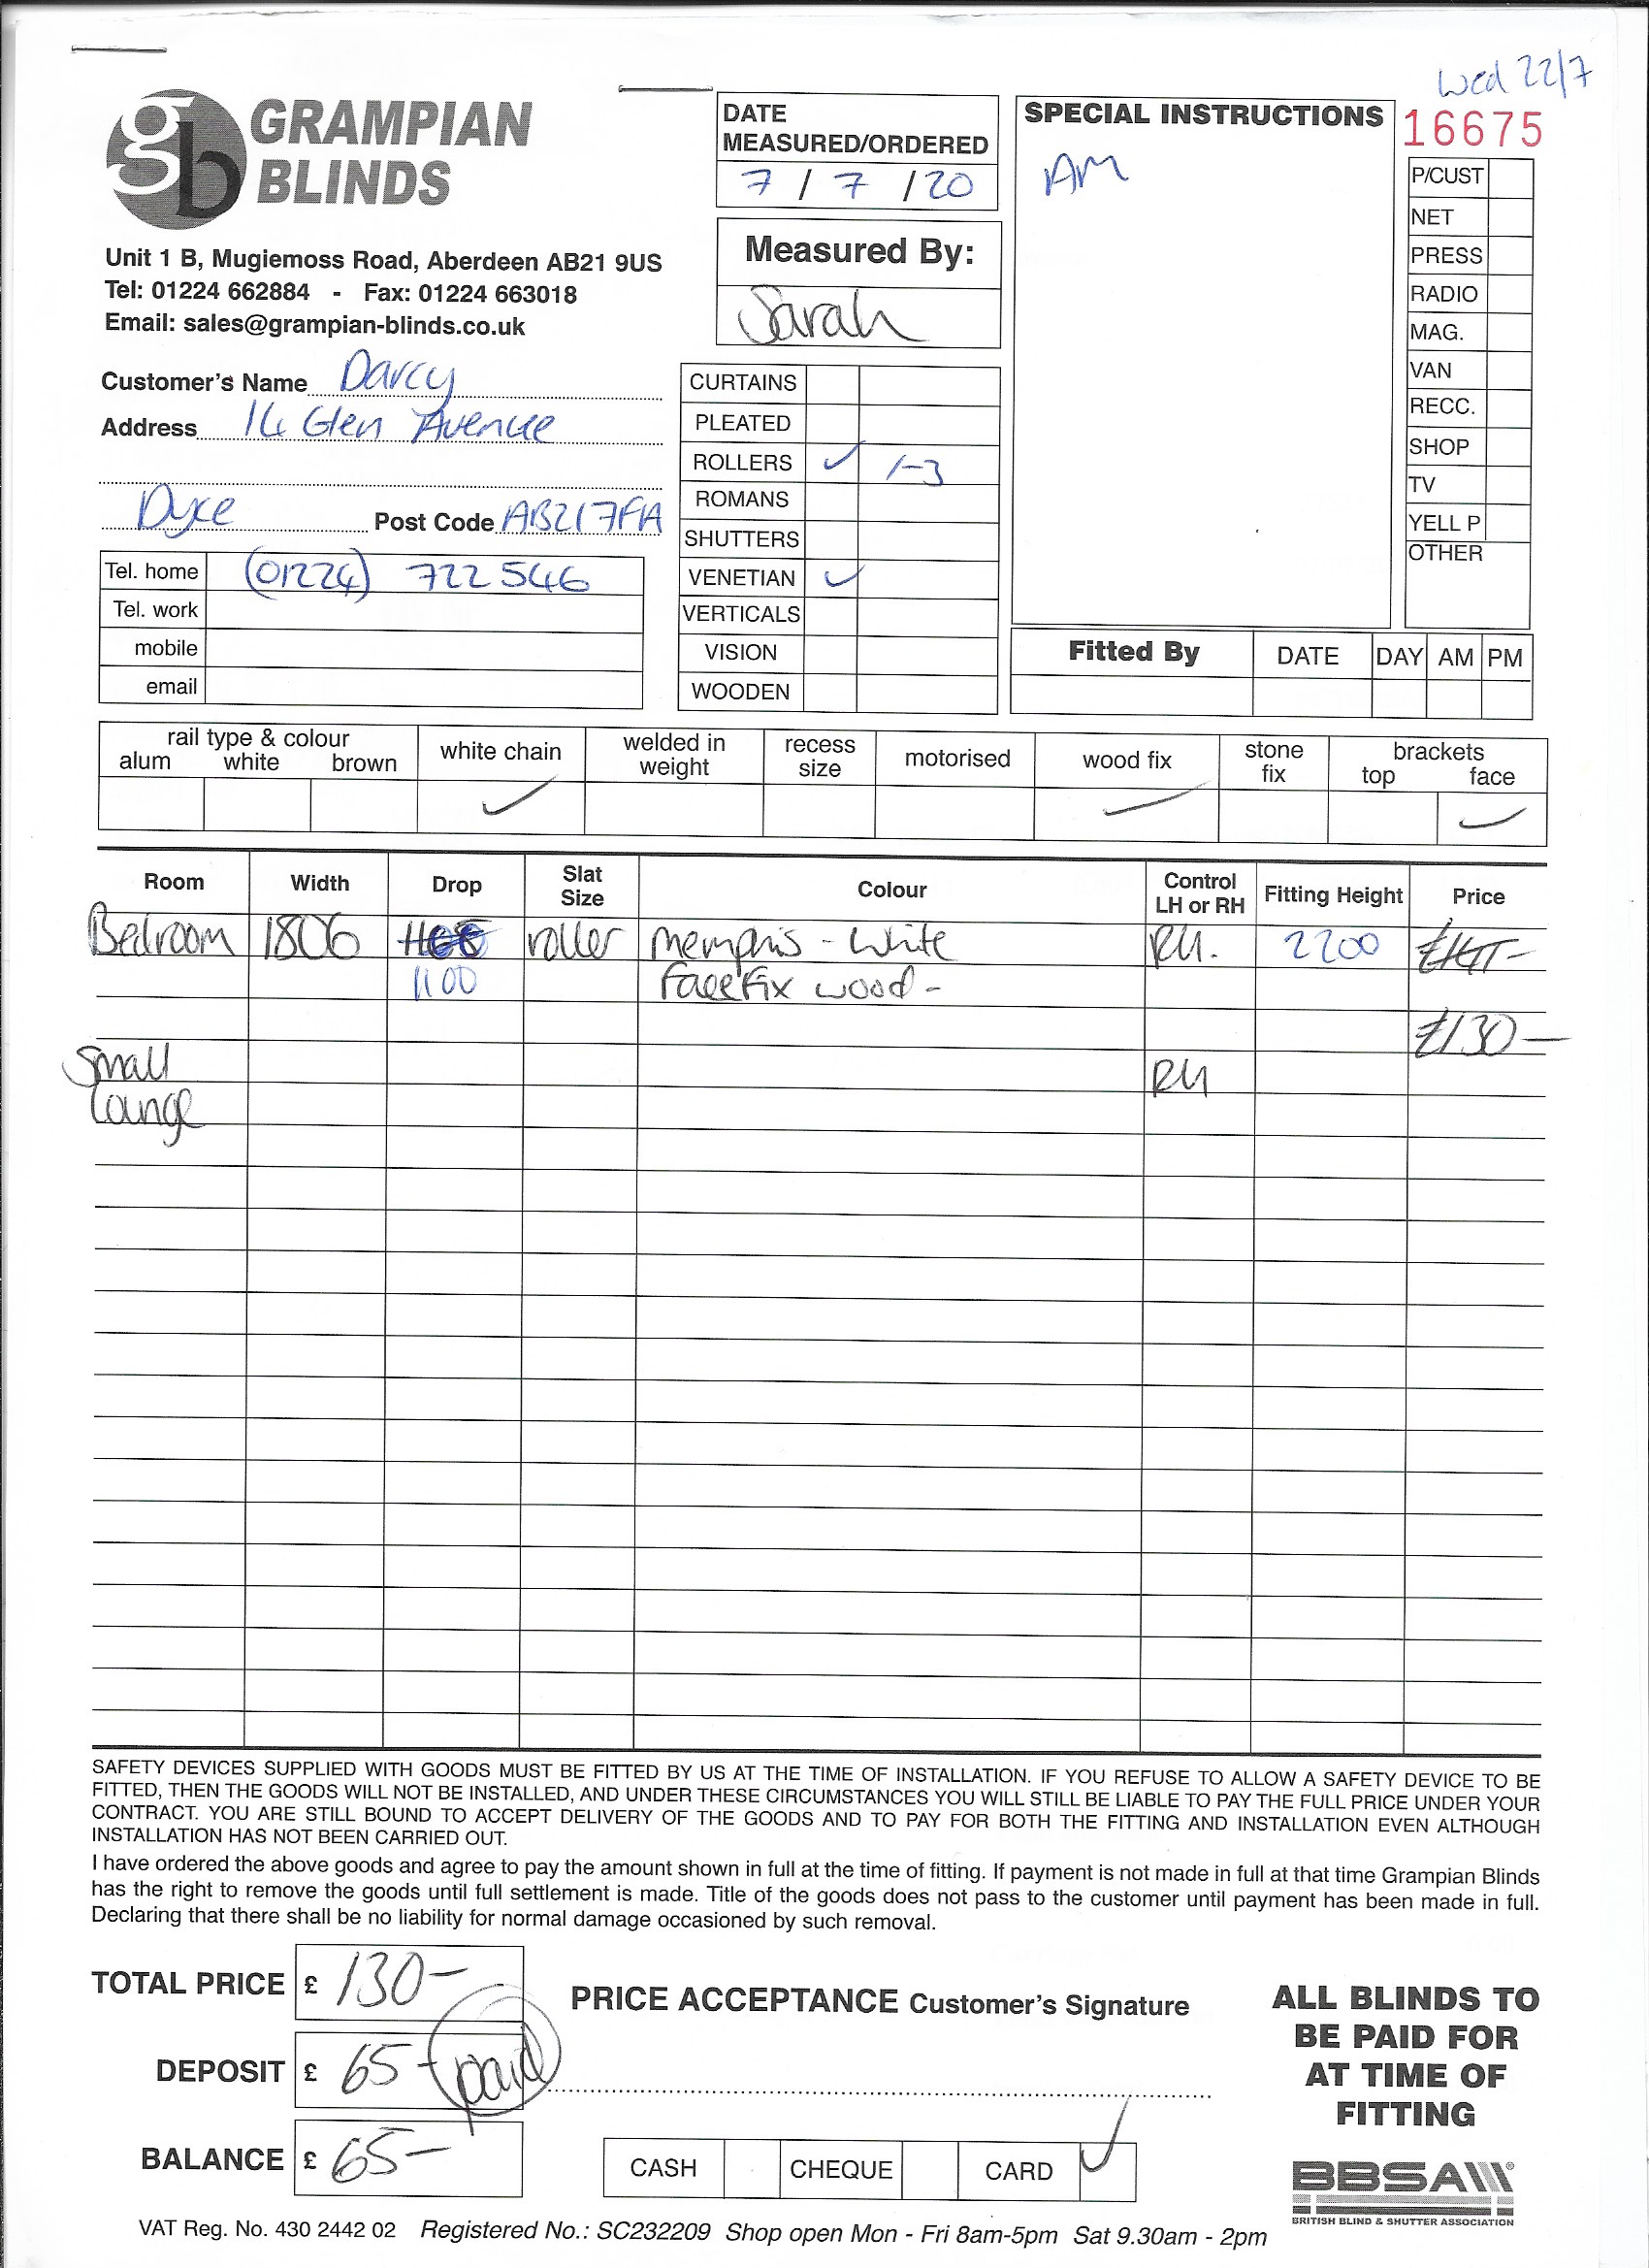 Wed 22/7
gb GRAMPIAN
BLINDS
Unit 1 B, Mugiemoss Road, Aberdeen AB21 9US
Tel: 01224 662884 - Fax: 01224 663018
Email: sales@grampian-blinds.co.uk
Customer's Name Darcy
Address 14 Glen Avenue
Dyce Post Code AB21 7FA
Tel. home (01224) 722546
Tel. work
mobile
email
DATE
MEASURED/ORDERED
7 / 7 / 20
Measured By:
Sarah
CURTAINS
PLEATED
ROLLERS ✓ 1-3
ROMANS
SHUTTERS
VENETIAN ✓
VERTICALS
VISION
WOODEN
SPECIAL INSTRUCTIONS
AM
16675
P/CUST
NET
PRESS
RADIO
MAG.
VAN
RECC.
SHOP
TV
YELL P
OTHER
Fitted By DATE DAY AM PM
rail type & colour
alum white brown
white chain ✓
welded in
weight
recess
size
motorised
wood fix ✓
stone
fix
brackets
top face ✓
Room Width Drop Slat Size Colour Control LH or RH Fitting Height Price
Bedroom 1806 roller Memphis - White RH. 2200
1100 Face Fix wood -
£130 -
Small RH
Lounge
SAFETY DEVICES SUPPLIED WITH GOODS MUST BE FITTED BY US AT THE TIME OF INSTALLATION. IF YOU REFUSE TO ALLOW A SAFETY DEVICE TO BE
FITTED, THEN THE GOODS WILL NOT BE INSTALLED, AND UNDER THESE CIRCUMSTANCES YOU WILL STILL BE LIABLE TO PAY THE FULL PRICE UNDER YOUR
CONTRACT. YOU ARE STILL BOUND TO ACCEPT DELIVERY OF THE GOODS AND TO PAY FOR BOTH THE FITTING AND INSTALLATION EVEN ALTHOUGH
INSTALLATION HAS NOT BEEN CARRIED OUT.
I have ordered the above goods and agree to pay the amount shown in full at the time of fitting. If payment is not made in full at that time Grampian Blinds
has the right to remove the goods until full settlement is made. Title of the goods does not pass to the customer until payment has been made in full.
Declaring that there shall be no liability for normal damage occasioned by such removal.
TOTAL PRICE £ 130-
DEPOSIT £ 65- paid
BALANCE £ 65-
PRICE ACCEPTANCE Customer's Signature
CASH CHEQUE CARD ✓
ALL BLINDS TO
BE PAID FOR
AT TIME OF
FITTING
BBSA
BRITISH BLIND & SHUTTER ASSOCIATION
VAT Reg. No. 430 2442 02 Registered No.: SC232209 Shop open Mon - Fri 8am-5pm Sat 9.30am - 2pm